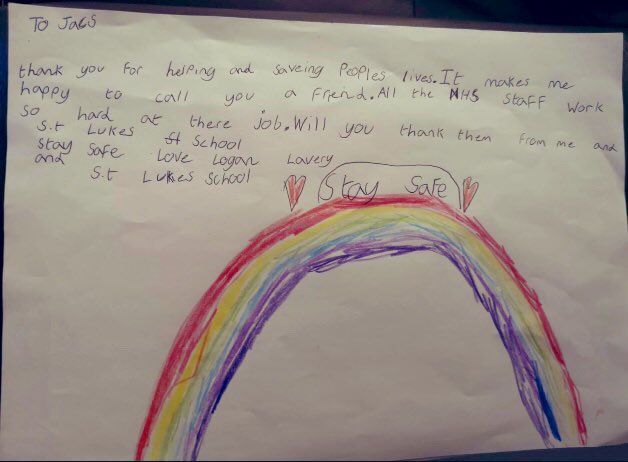 To Jacs
thank you for helping and saveing Peoples lives.It makes me
happy to call you a friend.All the NHS staff work
so hard at there job.Will you thank them from me and
S.t Lukes St School
stay safe Love Logan Lavery
and
S.t Lukes School
Stay Safe